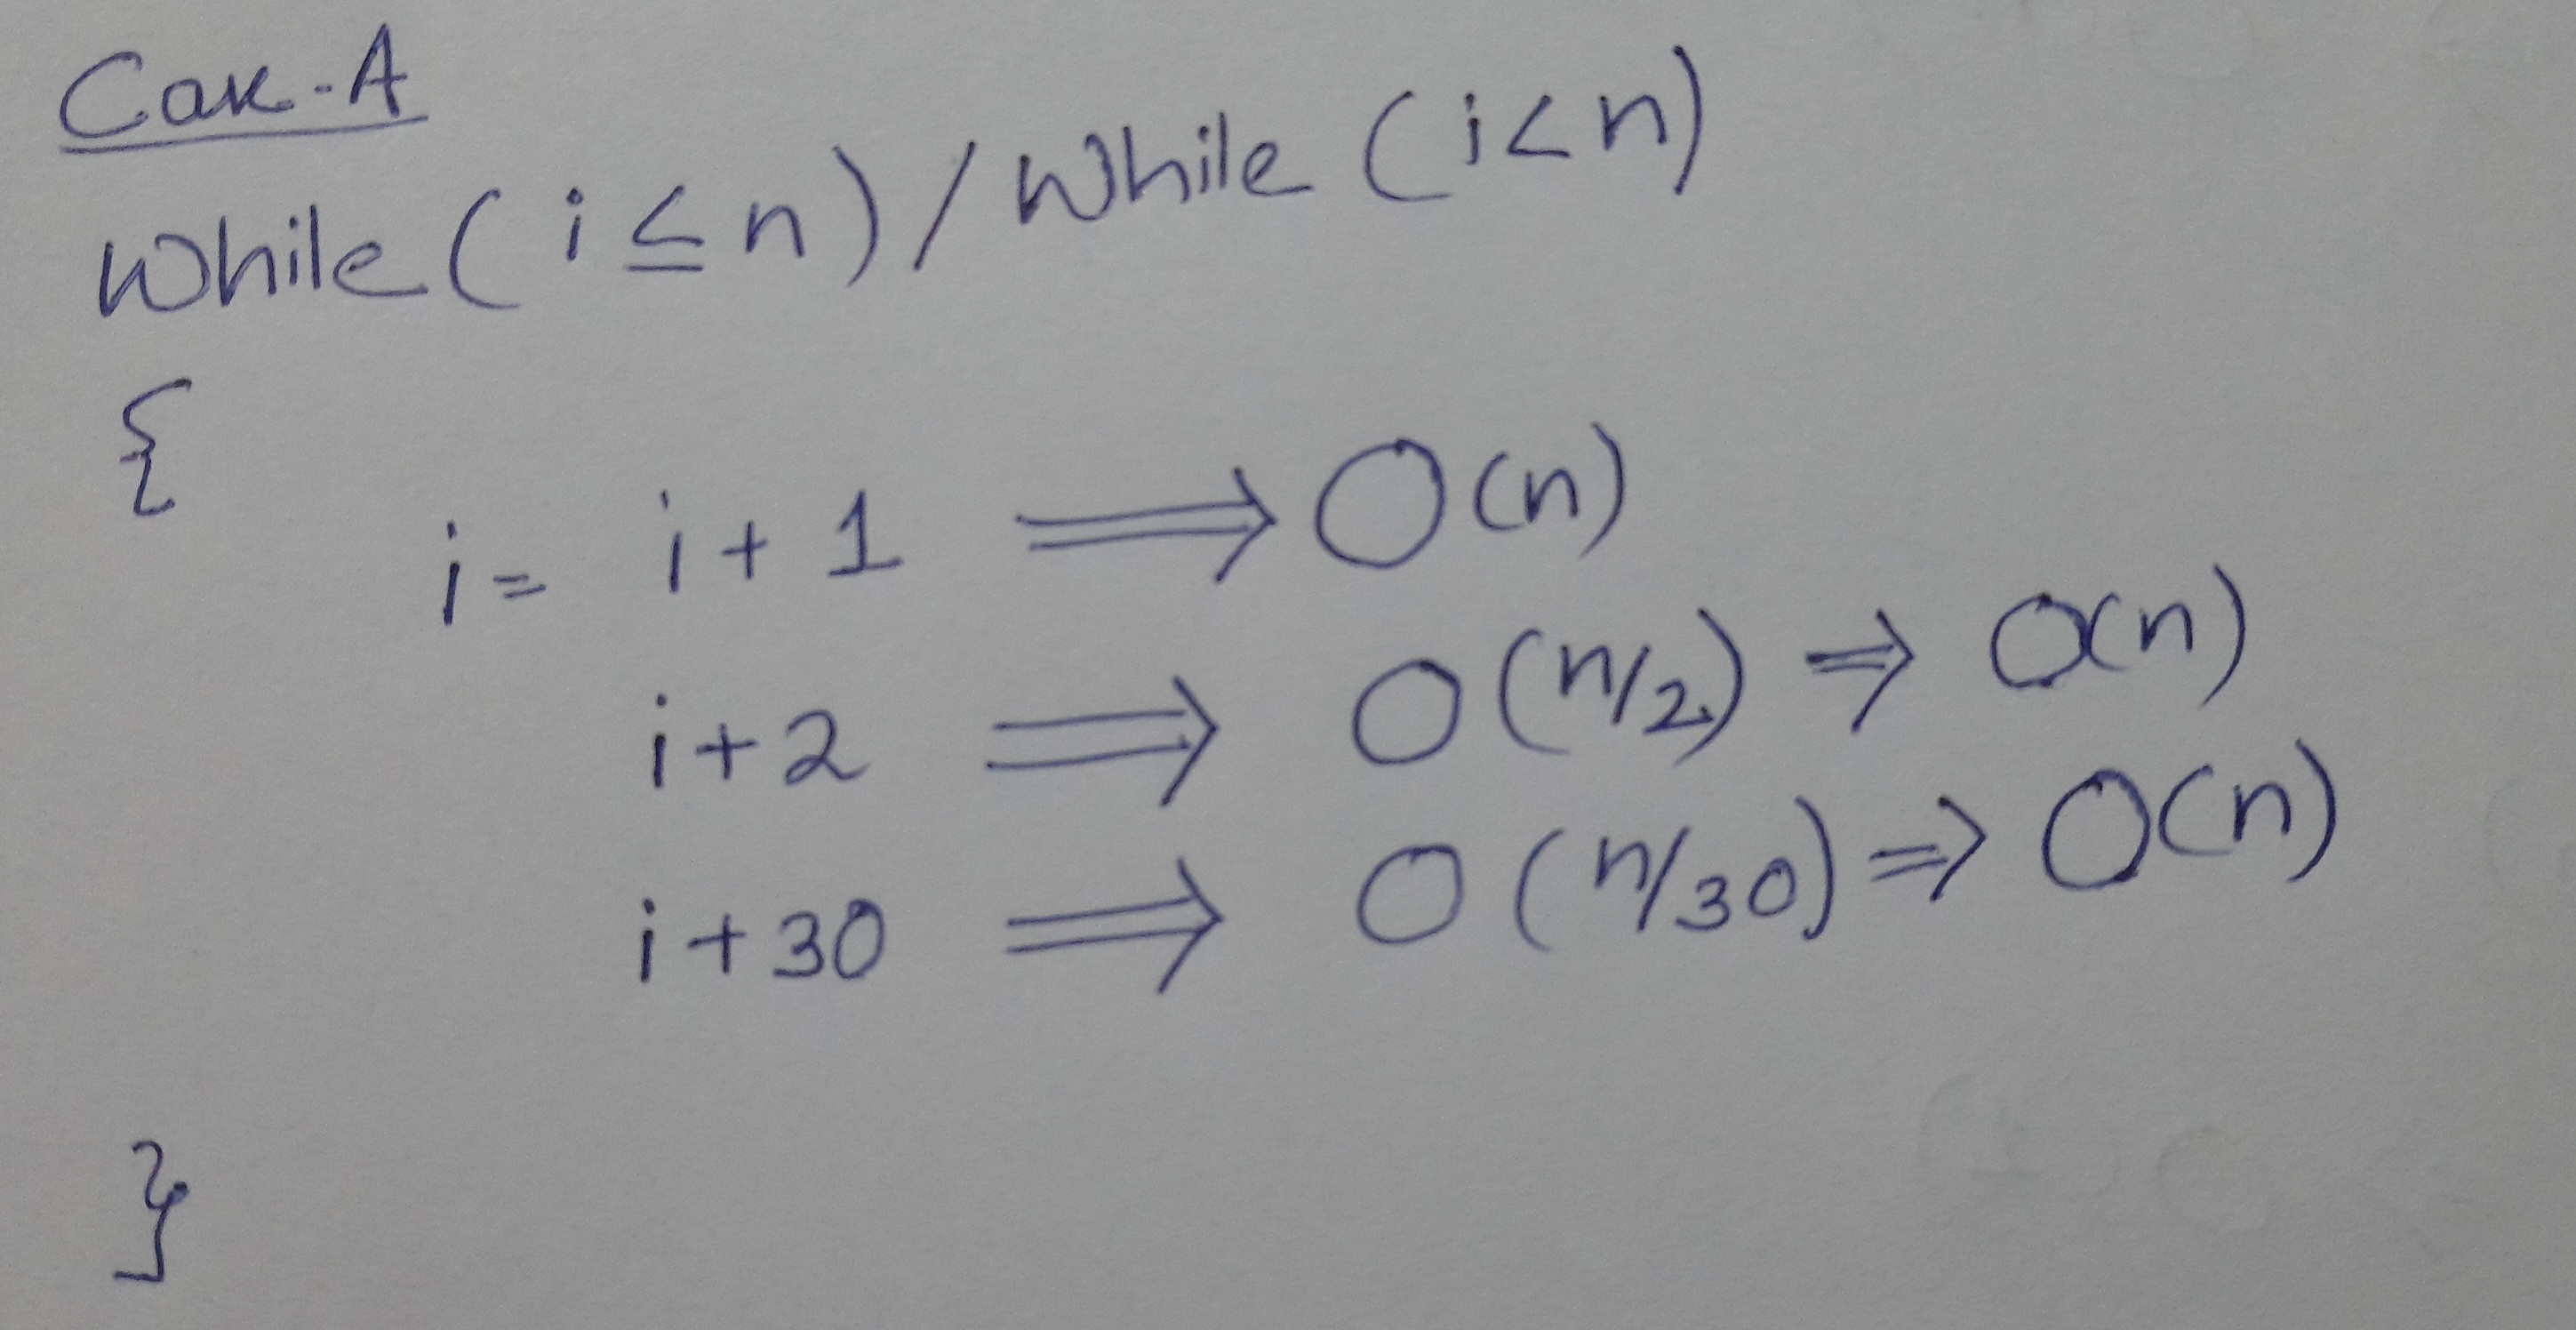 Case-A
While (i ≤ n) / While (i < n)
{
i = i + 1 ⟹ O(n)
i + 2 ⟹ O(n/2) ⇒ O(n)
i + 30 ⟹ O(n/30) ⇒ O(n)
}